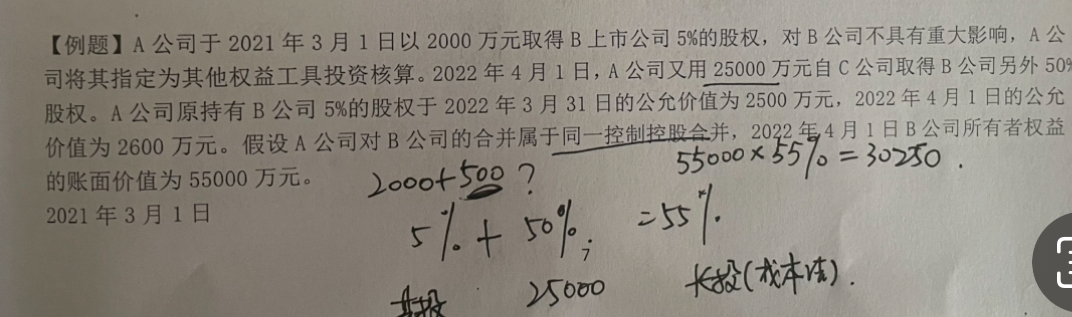 【例题】A 公司于 2021 年 3 月 1 日以 2000 万元取得 B 上市公司 5%的股权，对 B 公司不具有重大影响，A 公
司将其指定为其他权益工具投资核算。2022 年 4 月 1 日，A 公司又用 25000 万元自 C 公司取得 B 公司另外 50%
股权。A 公司原持有 B 公司 5%的股权于 2022 年 3 月 31 日的公允价值为 2500 万元，2022 年 4 月 1 日的公允
价值为 2600 万元。假设 A 公司对 B 公司的合并属于同一控制控股合并，2022 年 4 月 1 日 B 公司所有者权益
的账面价值为 55000 万元。
2000+500？
55000×55%=30250.
2021 年 3 月 1 日
5%+50%; =55%.
其投 25000 长投(成本法).